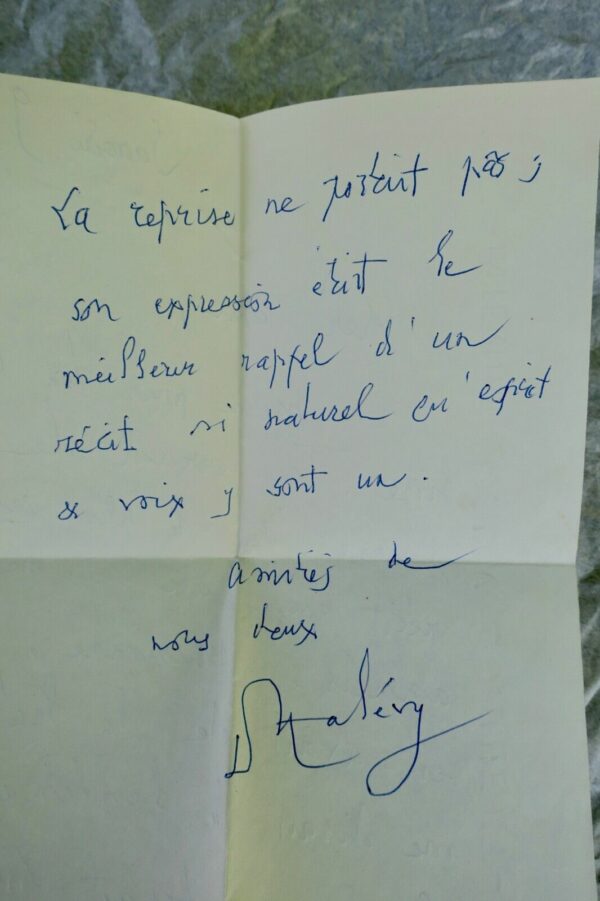 La reprise ne portait pas ;
son expression était le
meilleur rappel d'un
récit si naturel qu'esprit
& voix y sont un.
amitiés de
nous deux
DHalévy